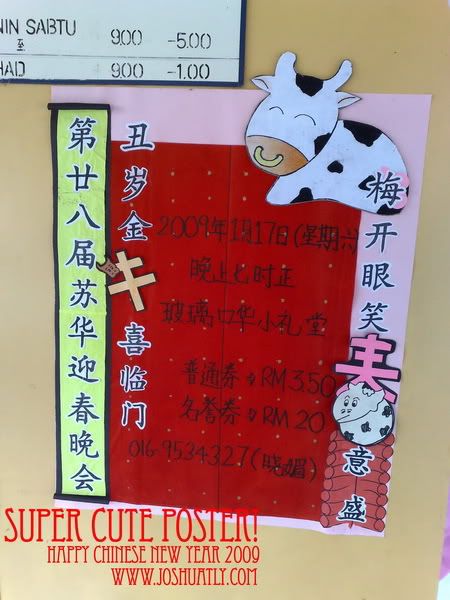 NIN SABTU 9.00 -5.00
至
HAD 9.00 -1.00
第廿八届苏华迎春晚会
丑岁金牛喜临门
2009年1月17日(星期六)
晚上七时正
玻璃口华小礼堂
普通券 → RM 3.50
名誉券 → RM 20
016-9534327(晓媚)
梅开眼笑春意盛
SUPER CUTE POSTER!
HAPPY CHINESE NEW YEAR 2009
WWW.JOSHUATLY.COM